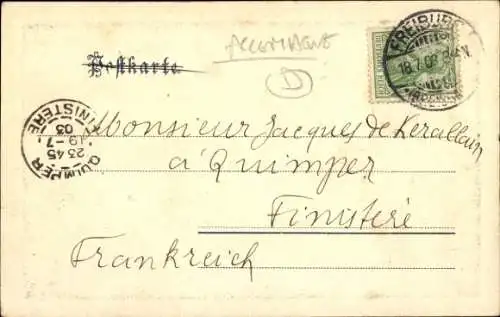 ALLEMAGNE
D
Postkarte
FREIBURG
18.7.03
Monsieur Jacques de Kerallain
à Quimper
Finisteré
Frankreich
QUIMPER
FINISTERE
23 45
19 - 7
03